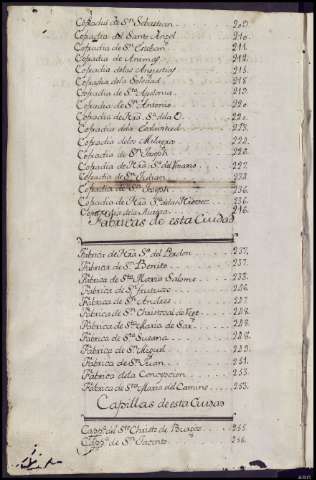 Cofradia de Sn. Sebastian . . . 209.
Cofradia del Santo Angel . . . 210.
Cofradia de Sn. Esteban . . . 211.
Cofradia de Animas . . . 212.
Cofradia delas Angustias . . . 215.
Cofradia dela Soledad . . . 218.
Cofradia de Sta. Apolonia . . . 219.
Cofradia de Sn. Antonio . . . 220.
Cofradia de Nra. Sra. dela O . . . 221.
Cofradia dela . . . 223.
Cofradia delos Milagros . . . 222.
Cofradia de Sn. Joseph . . . 226.
Cofradia de Nra. Sra. del . . . 227.
Cofradia de Sn. Julian . . . 232.
Cofradia de Sn. Joseph . . . 236.
Cofradia de Nra. Sra. delas Nieves . . . 236.
Cofradia dela . . . 246.
Fabricas de esta Ciudad
Fabrica de Nra. Sra. del Perdon . . . 257.
Fabrica de Sn. Benito . . . 257.
Fabrica de Sta. Maria Salome . . .
Fabrica de Sn. Fructuoso . . . 226.
Fabrica de Sn. Andres . . . 227.
Fabrica de Sn. Christoval de . . . 228.
Fabrica de Sta. Maria de Sar . . . 228.
Fabrica de Sta. Susana . . . 228.
Fabrica de Sn. Miguel . . . 229.
Fabrica de Sn. Juan . . . 251.
Fabrica dela Concepcion . . . 253.
Fabrica de Sta. Maria del Camino . . . 253.
Capillas de esta Ciudad
Capa. del Sto. Christo de Burgos . . . 255.
Capa. de Sn. Jacinto . . . 256.